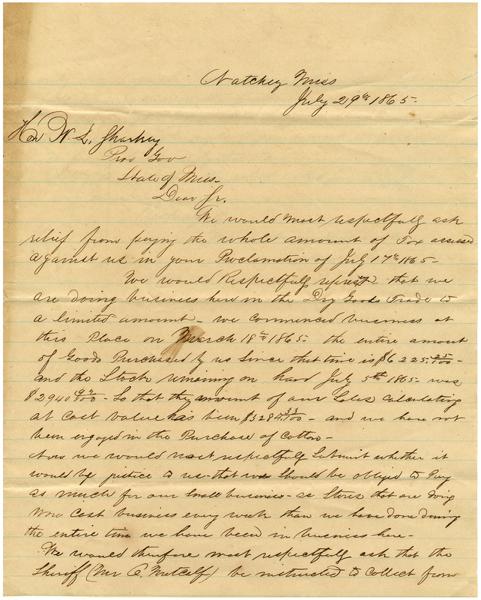 Natchez Miss
July 29th 1865-
Hon W. L. Sharkey
Prov Gov
State of Miss-
Dear Sr.
We would most respectfully ask
relief from paying the whole amount of Tax assessed
against us in your Proclamation of July 17th 1865-
We would Respectfully that we
are doing business here in the Dry Goods Trade to
a limited amount - we commenced business at
this Place on March 18th 1865- the entire amount
of Goods Purchased by us since that time is $6225.
and the Stock remaining on hand July 5th 1865- was
$2940 So that the amount of our Sales calculating
at Cost value has been $3284 - and we have not
been engaged in the Purchase of Cotton-
Now we would most respectfully Submit whether it
would be justice to us that we Should be obliged to Pay
as much for our Small business- as Stores that are doing
more Cash business every week than we have done during
the entire time we have been in business here-
We would therefore most respectfully ask that the
Sheriff (Mr O. Metcalf) be instructed to collect from